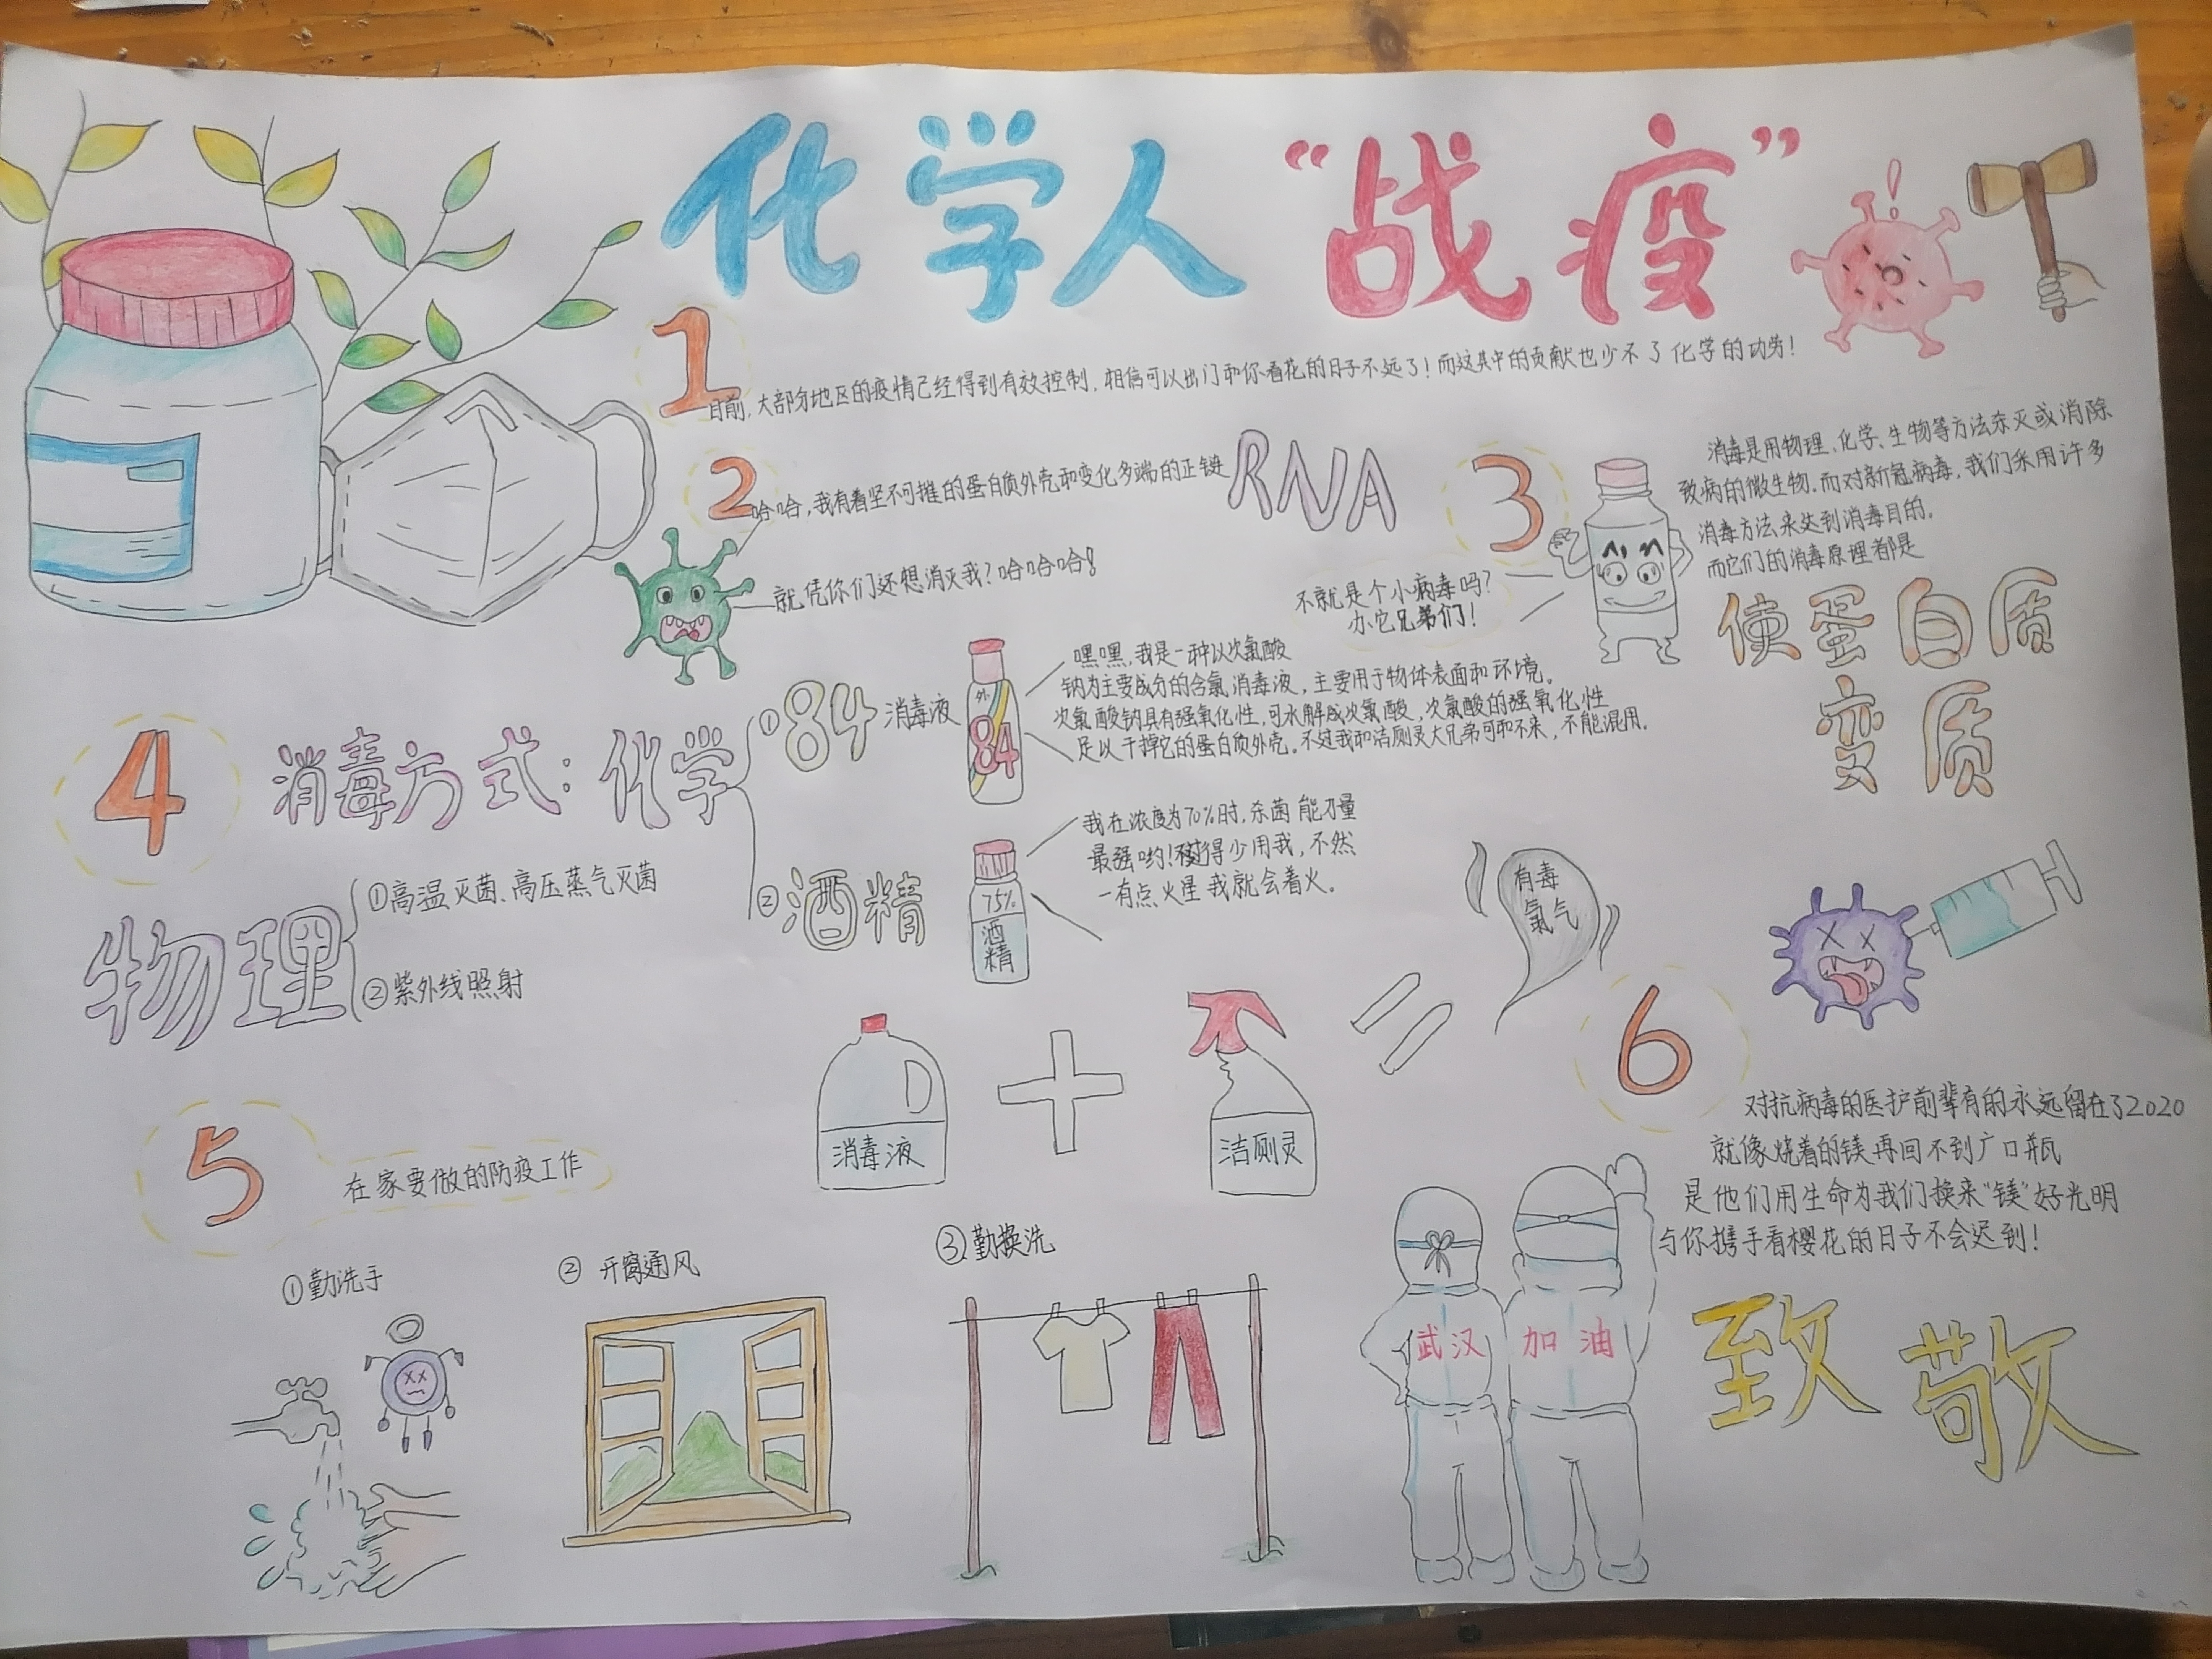 化学人“战疫”
1
目前，大部分地区的疫情已经得到有效控制，相信可以出门和你看花的日子不远了！而这其中的贡献也少不了化学的功劳！
2
哈哈，我有着坚不可摧的蛋白质外壳和变化多端的正链RNA
就凭你们还想消灭我？哈哈哈！
3
消毒是用物理、化学、生物等方法杀灭或消除
致病的微生物.而对新冠病毒，我们采用许多
消毒方法来达到消毒目的。
而它们的消毒原理都是
使蛋白质
变质
不就是个小病毒吗？
办它兄弟们！
4
消毒方式：化学
①84消毒液
外
84
嘿嘿，我是一种以次氯酸
钠为主要成分的含氯消毒液，主要用于物体表面和环境。
次氯酸钠具有强氧化性，可水解成次氯酸，次氯酸的强氧化性
足以干掉它的蛋白质外壳。不过我和洁厕灵大兄弟可和不来，不能混用。
②酒精
75%
酒
精
我在浓度为70%时，杀菌能力最
最强哟！得少用我，不然
一有点火星我就会着火。
物理
①高温灭菌、高压蒸气灭菌
②紫外线照射
消毒液
+
洁厕灵
=
有毒
氯气
5
在家要做的防疫工作
①勤洗手
②开窗通风
③勤换洗
6
对抗病毒的医护前辈有的永远留在了2020
就像烧着的镁再回不到广口瓶
是他们用生命为我们换来“镁”好光明
与你携手看樱花的日子不会迟到！
武汉
加油
致敬